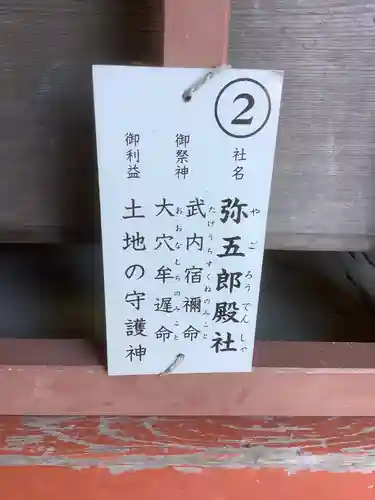 ②
社名 弥五郎殿社
やごろうでんしゃ
御祭神 武内宿禰命
たけうちすくねのみこと
大穴牟遅命
おおなむちのみこと
御利益 土地の守護神